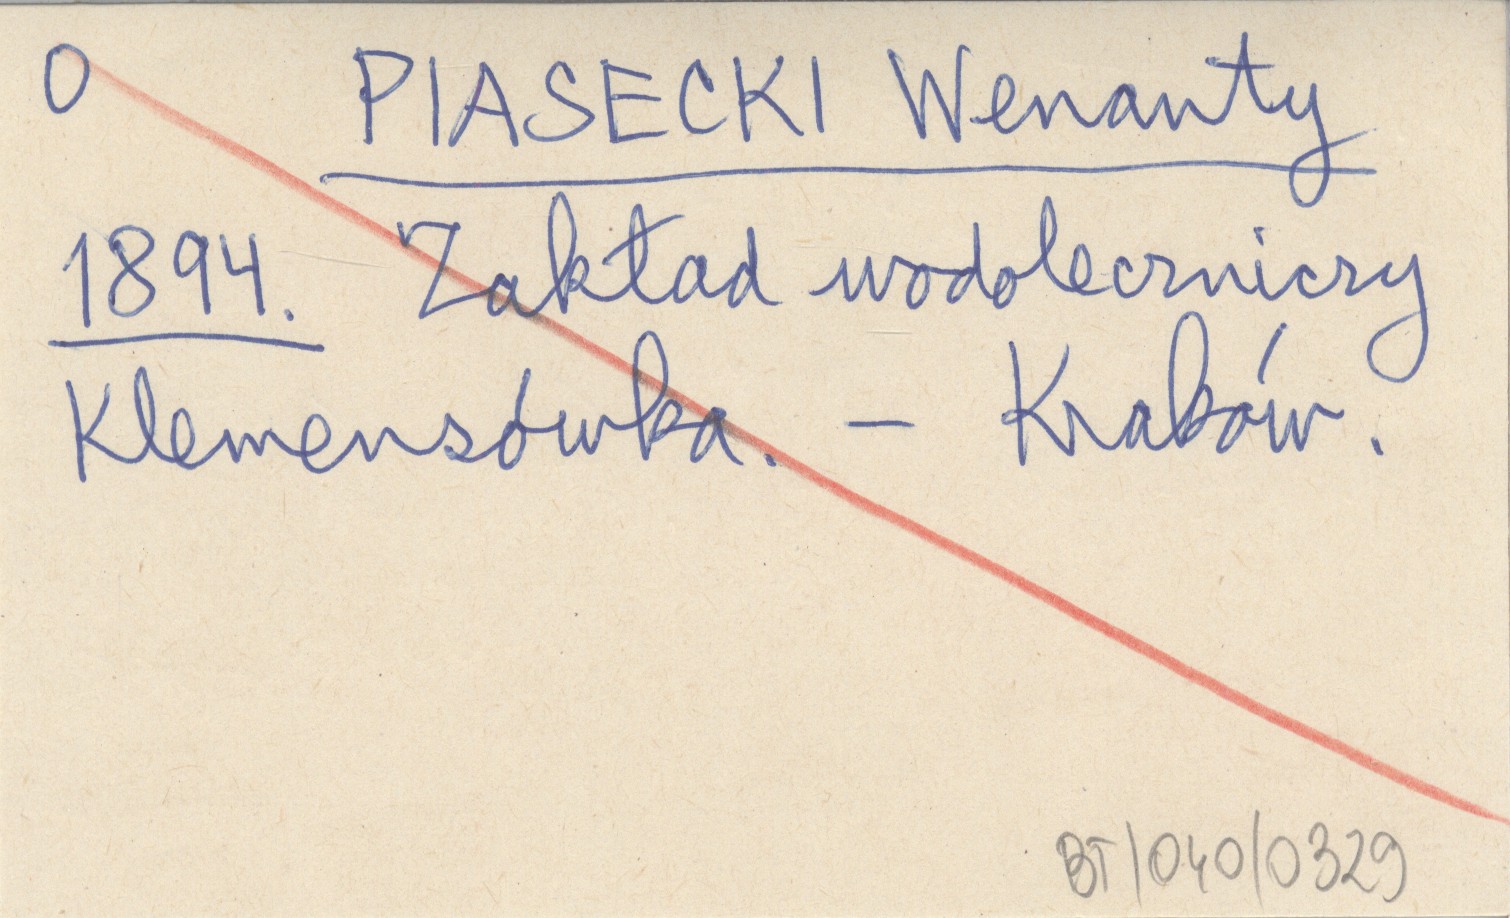 O PIASECKI Wenanty
1894. Zakład wodoleczniczy
Klemensówka. – Kraków.
BT/040/0329